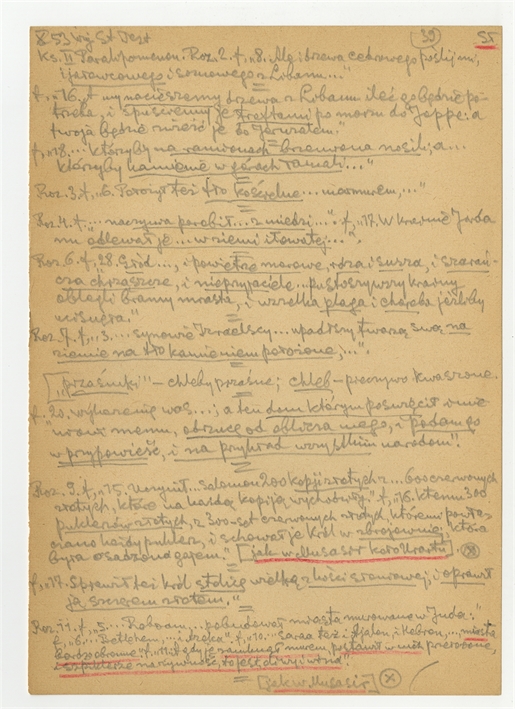 X 53 wij St Test (39) 55
Ks. II Paralipomenon. Roz. 2. f. „8. Ale i drzewa cedrowego poślij mi,
i jarowcowego i sosnowego z Libanu..."
f. „16. A my nacieszemy drzewa z Libanu ileć go będzie po-
trzeba, i spuścimy je tratami po morzu do Joppe: a
twoja będzie zwieść je do Jeruzalem."
f. „18... którzyby na ramionach brzemiona nosili; a...
którzyby kamienie w górach łamali..."
Roz. 3. f. „6. Położył też tło kościelne... marmurem,..."
Roz. 4. f. „... naczynia porobił... z miedzi...". f. „17. W krainie Jorda
nu odlewał je... w ziemi iłowatej...".
Roz. 6. f. „28. Głód..., i powietrze morowe, rdza i susza, i szarań-
cza chrząszcze, i nieprzyjaciele... pustoszywszy krainy
oblegli bramy miasta, i wszelka plaga i choroba jeśliby
ucisnęła."
Roz. 7. f. „3.... synowie Izraelscy... upadłszy twarzą swą na
ziemię na tło kamieniem położone,...".
["przaśniki" – chleby przaśne; chleb – pieczywo kwaszone.
f. „20. wykorzenię was...; a ten dom którym poświęcił
imieniu memu, odrzucę od oblicza mego, i podam go
w przypowieść, i na przykład wszystkim narodom".
Roz. 9. f. „15. Uczynił... Salomon 200 kopij złotych z... 600 czerwonych
złotych, które na każdą kopiją wychodziły." f. „16. k temu 300
puklerzów złotych, z 300-set czerwonych złotych, któremi powle
czono każdy puklerz, i schował je król w zbrojownię, która
była osadzona gajem." [jak w Musasir koło Urartu]. (X)
f. „17. Sprawił też król stolicę wielką z kości słoniowej, i oprawił
ją szczerem złotem."
Roz. 11. f. „5... Roboam... pobudował miasta murowane w Juda:"
f. „6... Betlehem,... f. „10... Saraa też i Ajalon, i Hebron,... miasta
bardzo obronne." f. „11. A gdy je zamknął murem, postawił w nich przełożone,
i szpiklerze na żywność, to jest oliwy i wina".
[jak w Musasir] (X)